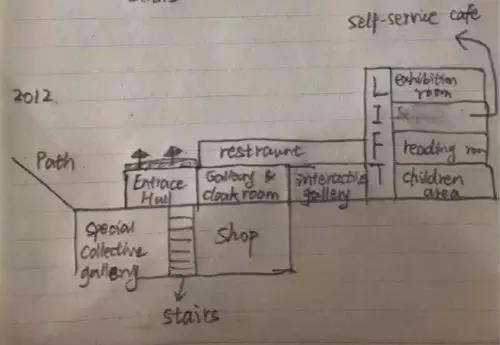 self-service cafe
2012.
Path
LIFT
exhibition
room
restraunt
reading room
Entrace
Hull
Gallery &
cloakroom
interactive
gallery
children
area
special
collective
gallery
Shop
stairs